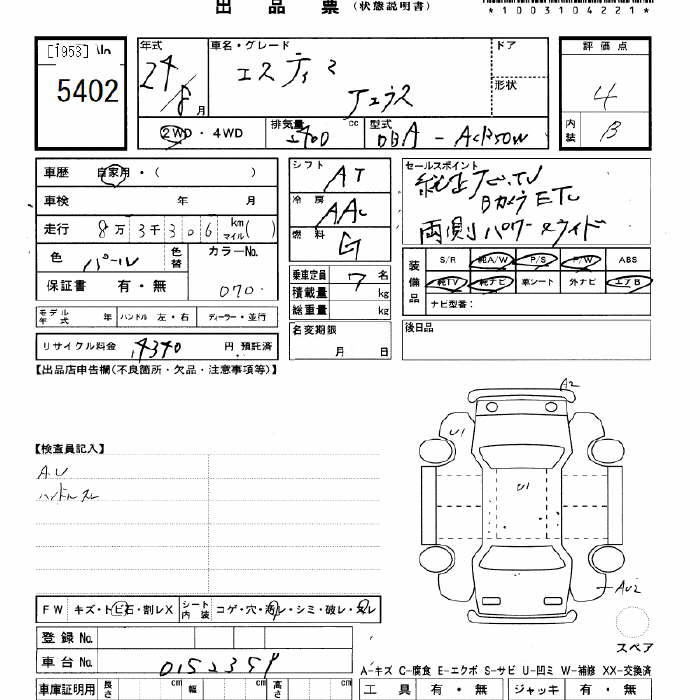 出品票 (状態説明書)
*1003104221*
[1953] 5402
年式 24 8月 車名・グレード エスティマ アエラス ドア 形状
2WD・4WD 排気量 2400 cc 型式 DBA-ACR50W
評価点 4
内装 B
車歴 自家用・( )
車検 年 月
走行 8万3千306 km マイル( )
色 パール 色替 カラーNo. 070
保証書 有・無
シフト AT
冷房 AAC
燃料 G
乗車定員 7名
積載量 kg
総重量 kg
名変期限 月 日
セールスポイント
純正ナビ.TV
Bカメラ ETC
両側パワースライド
装備品 S/R 純A/W P/S P/W ABS
純TV 純ナビ 革シート 外ナビ エアB
ナビ型番:
後日品
モデル年式 年 ハンドル 左・右 ディーラー・並行
リサイクル料金 14340 円 預託済
【出品店申告欄(不良箇所・欠品・注意事項等)】
【検査員記入】
A.U
ハンドルスレ
A2
U1
U1
AU2
スペア
FW キズ・トビ石・割レX シート内装 コゲ・穴・汚レ・シミ・破レ・スレ
登録No.
車台No. 0152359
車庫証明用 長さ cm 幅 cm 高さ cm
A-キズ C-腐食 E-エクボ S-サビ U-凹ミ W-補修 XX-交換済
工具 有・無 ジャッキ 有・無